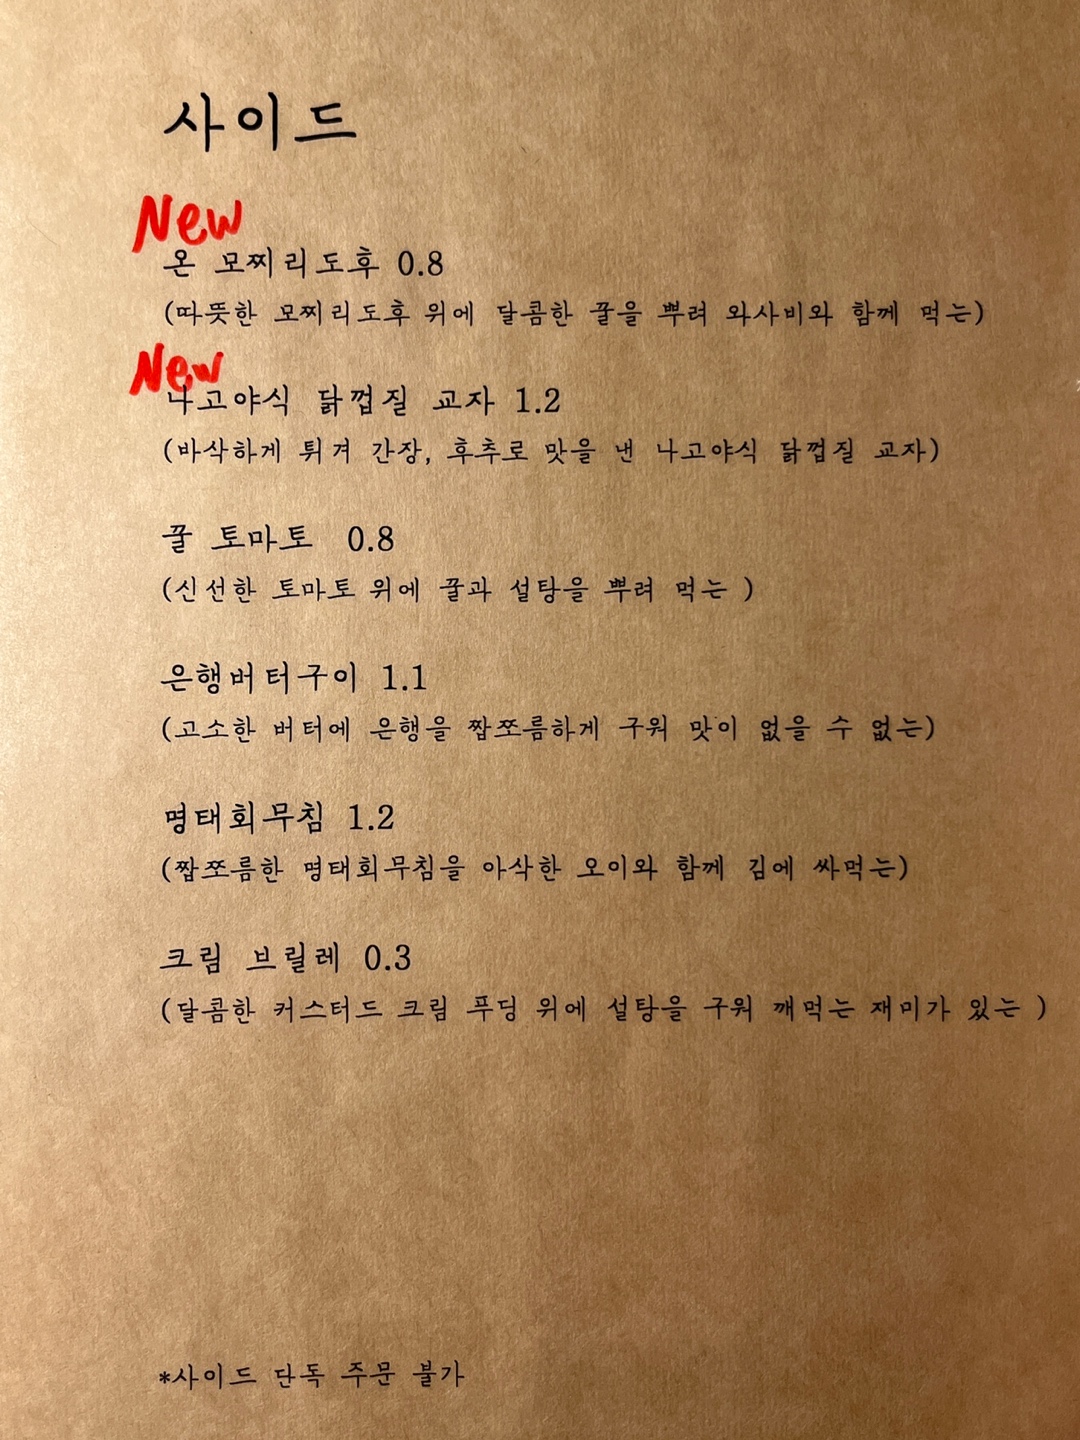 사이드
New
온 모찌리도후 0.8
(따뜻한 모찌리도후 위에 달콤한 꿀을 뿌려 와사비와 함께 먹는)
New
나고야식 닭껍질 교자 1.2
(바삭하게 튀겨 간장, 후추로 맛을 낸 나고야식 닭껍질 교자)
꿀 토마토 0.8
(신선한 토마토 위에 꿀과 설탕을 뿌려 먹는 )
은행버터구이 1.1
(고소한 버터에 은행을 짭쪼름하게 구워 맛이 없을 수 없는)
명태회무침 1.2
(짭쪼름한 명태회무침을 아삭한 오이와 함께 김에 싸먹는)
크림 브릴레 0.3
(달콤한 커스터드 크림 푸딩 위에 설탕을 구워 깨먹는 재미가 있는 )
*사이드 단독 주문 불가